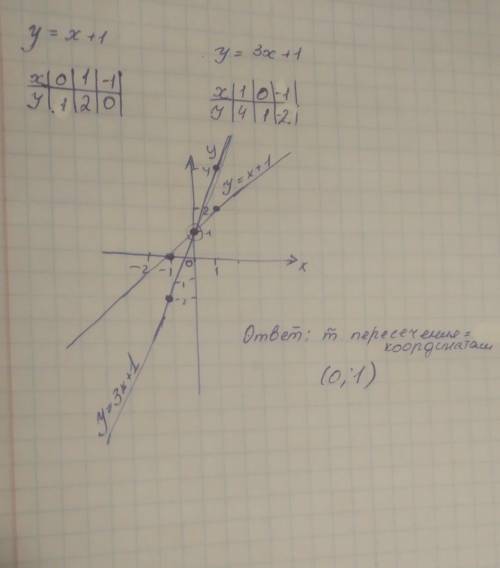 y = x + 1
y = 3x + 1
x | 0 | 1 | -1 |
y | 1 | 2 | 0 |
x | 1 | 0 | -1 |
y | 4 | 1 | -2 |
y
4
y = x + 1
2
1
-2 -1 0 1 x
-1
-2
Ответ: т пересечения =
координатам
(0; 1)
y = 3x + 1